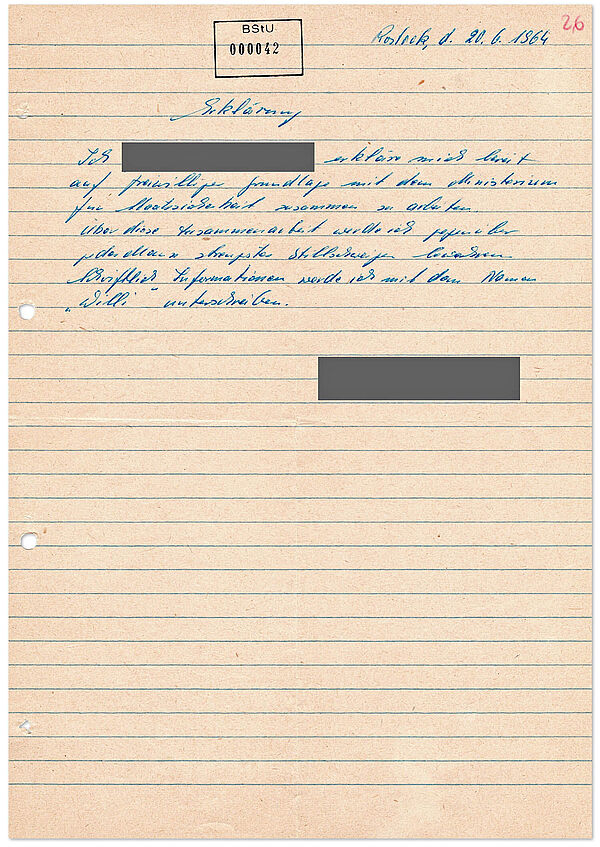 26
BStU
000042
Rostock, d. 20.6.1964
Erklärung
Ich erkläre mich bereit
auf freiwilliger Grundlage mit dem Ministerium
für Staatssicherheit zusammen zu arbeiten.
Über diese Zusammenarbeit werde ich gegenüber
jedermann strengstes Stillschweigen bewahren.
Schriftlich Informationen werde ich mit dem Namen
„Willi" unterschreiben.